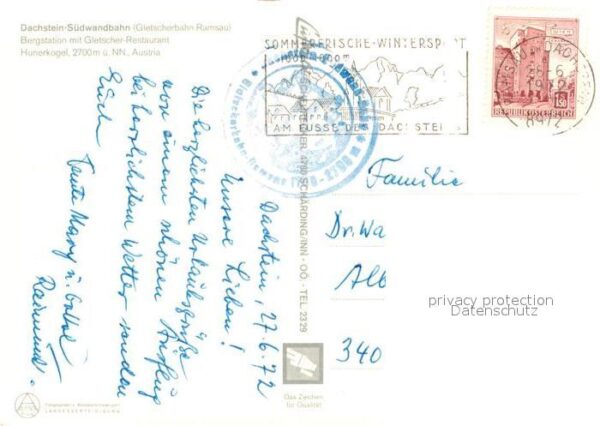 Dachstein-Südwandbahn (Gletscherbahn Ramsau)
Bergstation mit Gletscher-Restaurant
Hunerkogel, 2700 m ü. NN., Austria
SOMMERFRISCHE·WINTERSPORT
AM FUSSE DES DACHSTEIN
1972
8972
1.50
REPUBLIK ÖSTERREICH
Dachstein, 27.6.72
Unsere Lieben!
Die herzlichsten Urlaubsgrüße
von einem schönen Ausflug
bei herrlichstem Wetter senden
Euch
Tante Mary u. Onkel
Raimund.
4780 SCHÄRDING/INN - OÖ. - TEL. 23 29
Familie
Dr. Wa
Alb
340
privacy protection
Datenschutz
Das Zeichen
für Qualität